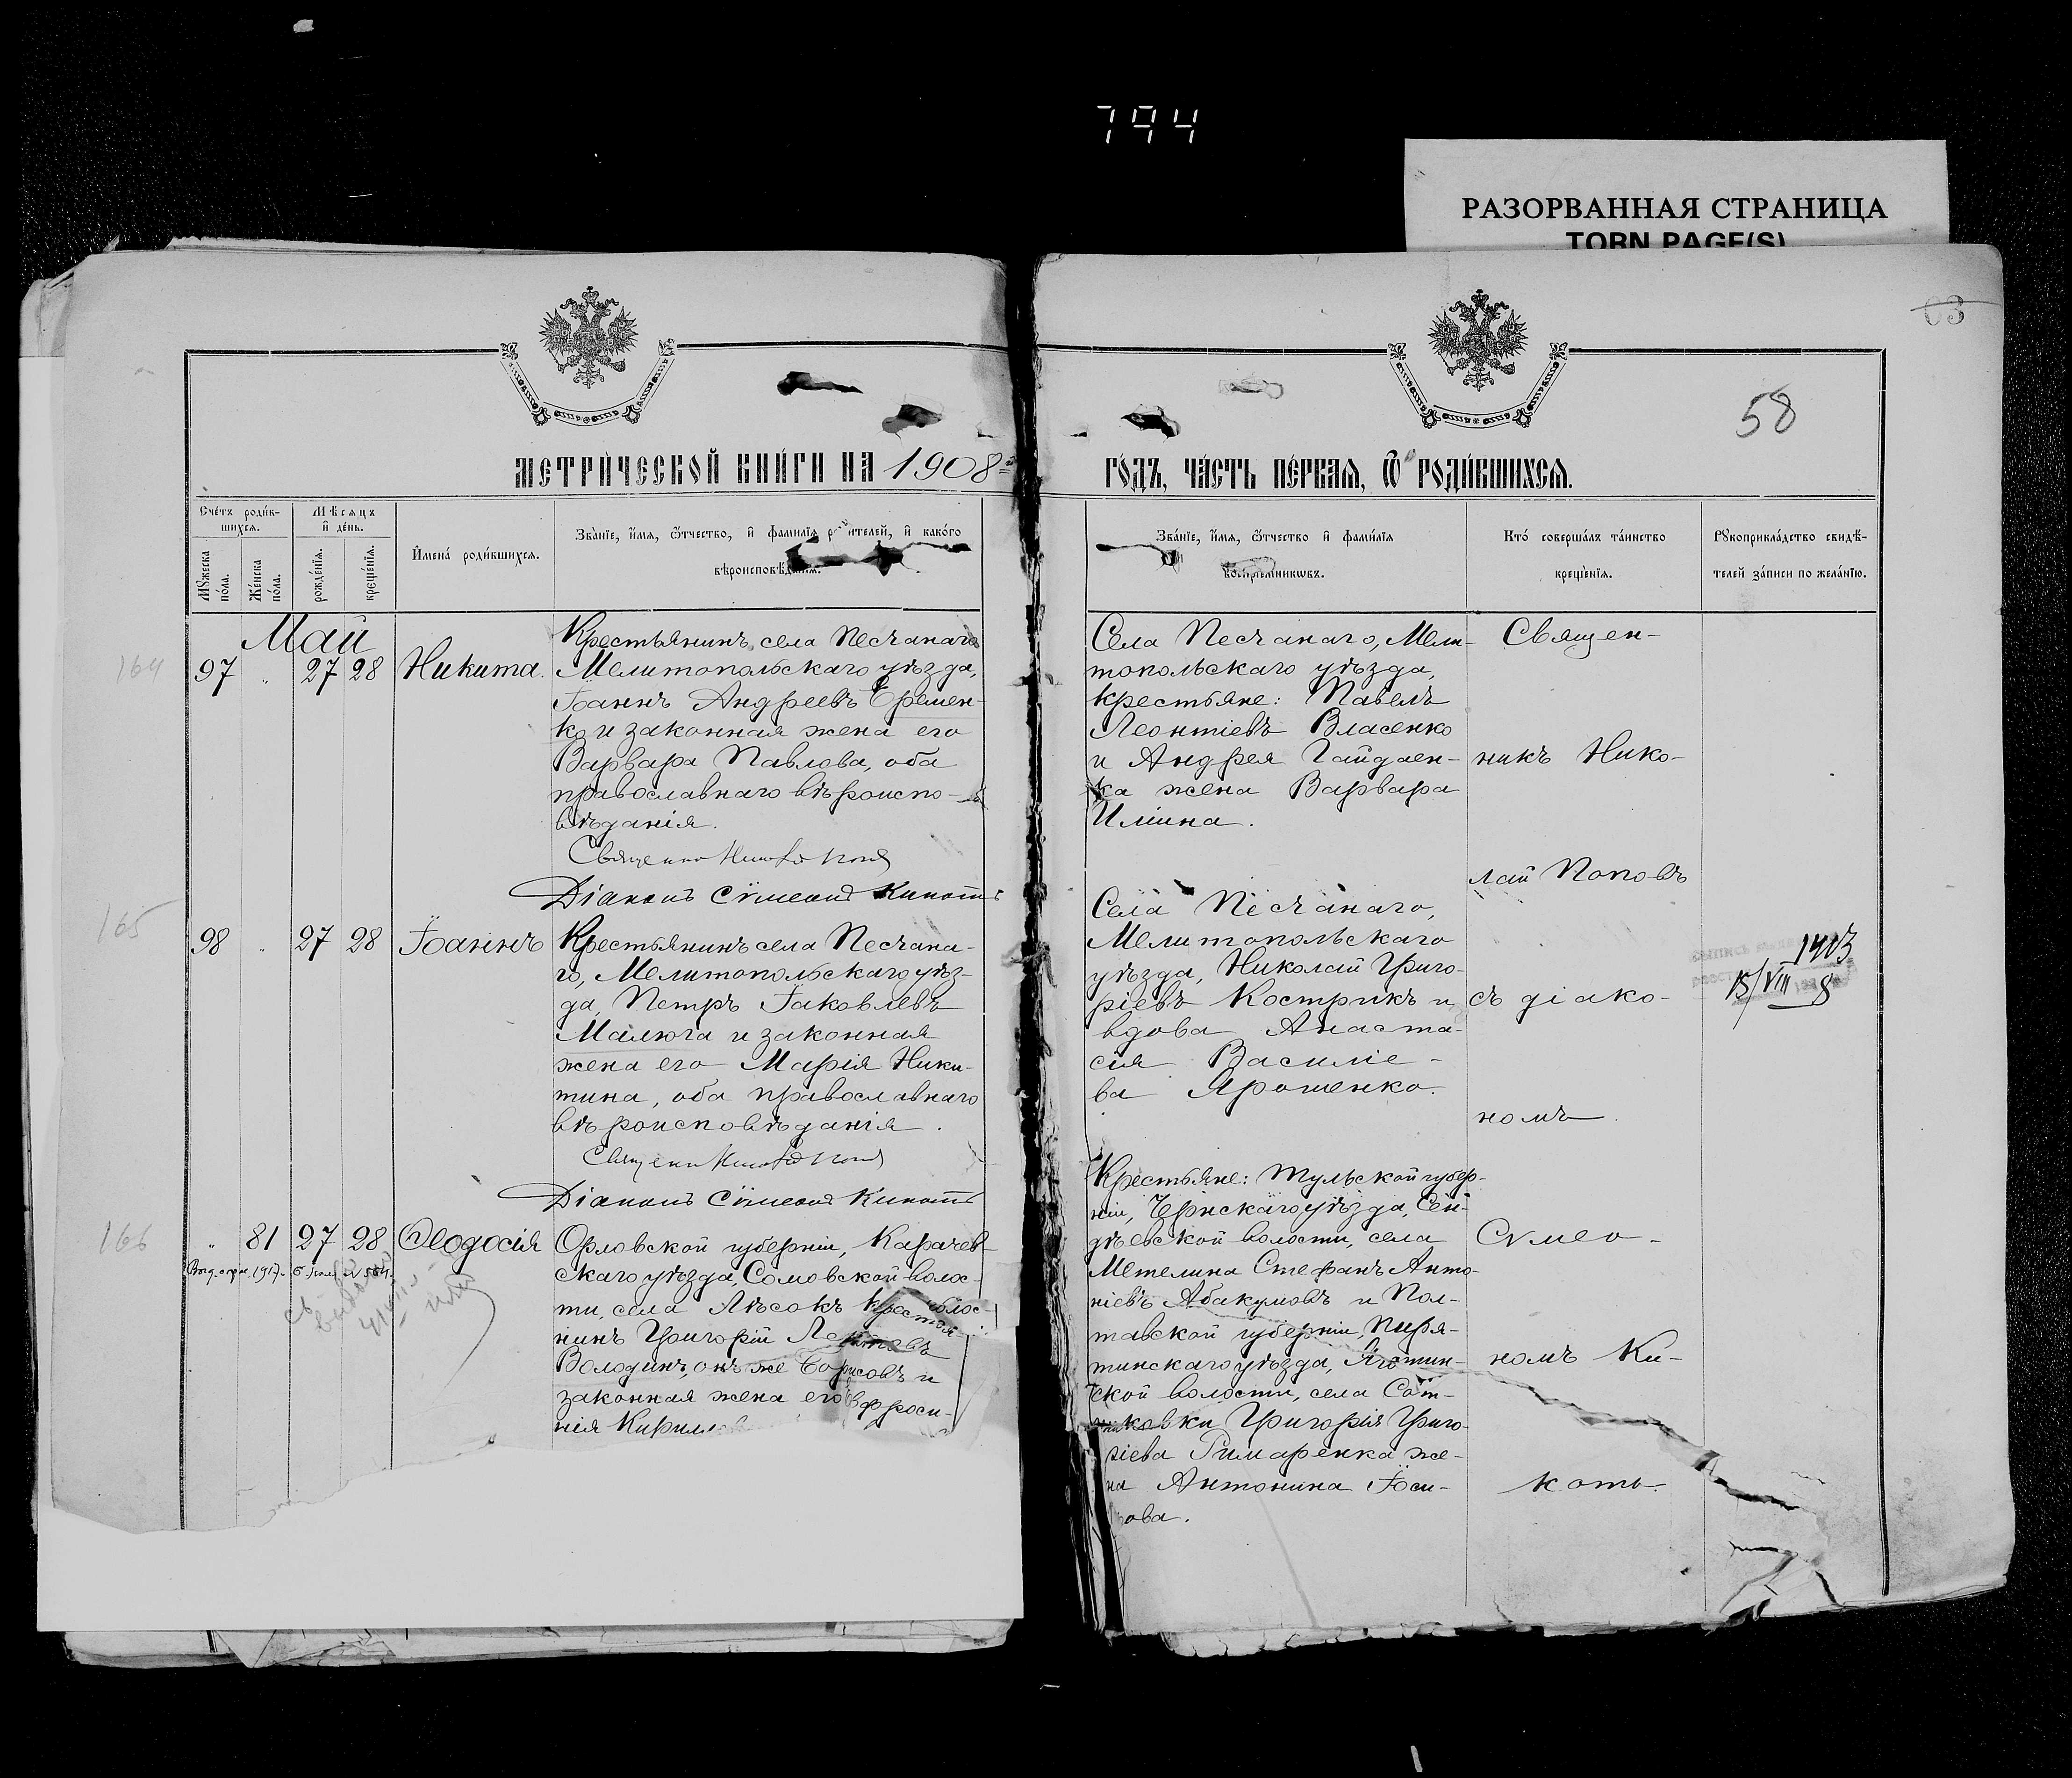 794
РАЗОРВАННАЯ СТРАНИЦА
TORN PAGE(S)
63
58
МЕТРИЧЕСКОЙ КНИГИ НА 1908й
ГОДЪ, ЧАСТЬ ПЕРВАЯ, Ѡ РОДИВШИХСЯ.
Счетъ родив-
шихся.
Мужеска
пола.
Женска
пола.
Мѣсяцъ
и день.
рожденія.
крещенія.
Имена родившихся.
Званіе, имя, ѿчество, и фамилія родителей, и какого
вѣроисповѣданія.
Званіе, имя, ѿчество и фамилія
воспріемниковъ.
Кто совершалъ таинство
крещенія.
Рукоприкладство свидѣ-
телей записи по желанію.
Май
164
97 " 27 28 Никита.
Крестьянинъ села Песчанаго
Мелитопольскаго уѣзда,
Іоаннъ Андреевъ Еремен-
ко и законная жена его
Варвара Павлова, оба
православнаго вѣроиспо-
вѣданія.
Діаконъ Сѵмеонъ Кикоть
Села Песчанаго, Мели-
топольскаго уѣзда,
крестьяне: Павелъ
Леонтіевъ Власенко
и Андрея Гайдаен-
ка жена Варвара
Иліина.
Священ-
никъ Нико-
лай Поповъ
165
98 " 27 28 Іоаннъ
Крестьянинъ села Песчана-
го, Мелитопольскаго уѣз-
да, Петръ Іаковлевъ
Малюга и законная
жена его Марія Ники-
тина, оба православнаго
вѣроисповѣданія.
Діаконъ Сѵмеонъ Кикоть
Села Песчанаго,
Мелитопольскаго
уѣзда, Николай Григо-
ріевъ Кострикъ и
вдова Анаста-
сія Василіе-
ва Ярошенко.
съ діако-
номъ
15/VIII 8
166
" 81 27 28 Ѳеодосія
1917
Орловской губерніи, Карачев-
скаго уѣзда, Сомовской волос-
ти, села Лѣсокъ крестья-
нинъ Григорій
Володинъ, онъ же Борисовъ и
законная жена его Евфроси-
нія Кирил
Крестьяне: Тульской губер-
ніи, Чернскаго уѣзда, Сен-
дѣевской волости, села
Метелина Стефанъ Анто-
ніевъ Абакумовъ и Пол-
тавской губерніи, Пиря-
тинскаго уѣзда, Яготин-
ской волости, села Сот-
никовки Григорія Григо-
ріева Римаренка же-
на Антонина Іоси-
пова.
Сѵмео-
номъ Ки-
коть.